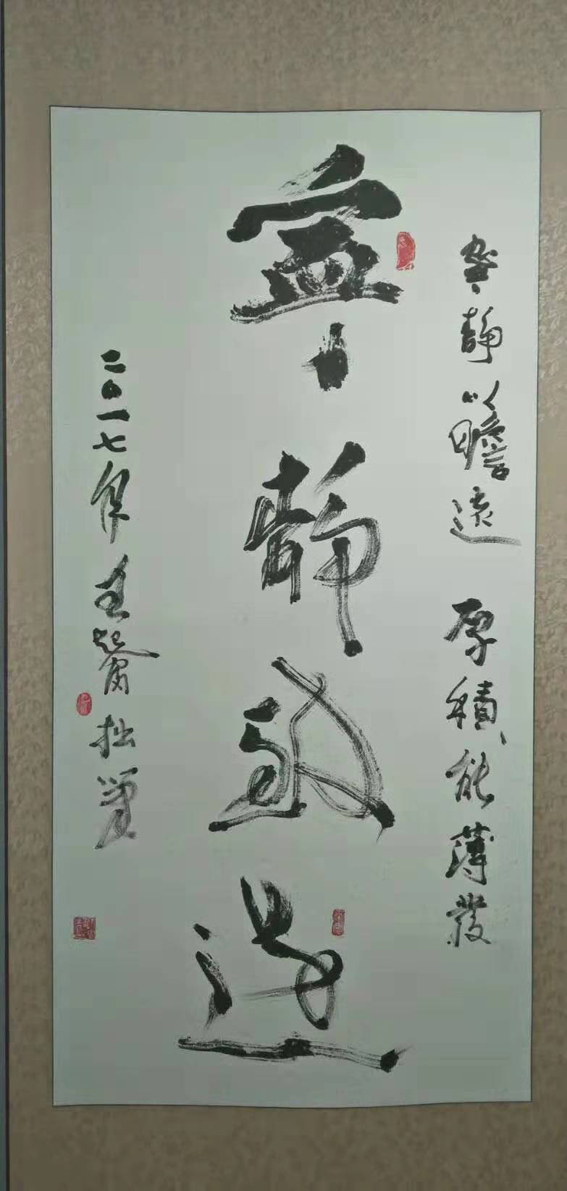 寧静以瞻遠 厚積能薄發
寧静致遠
二〇一七年 拙筆